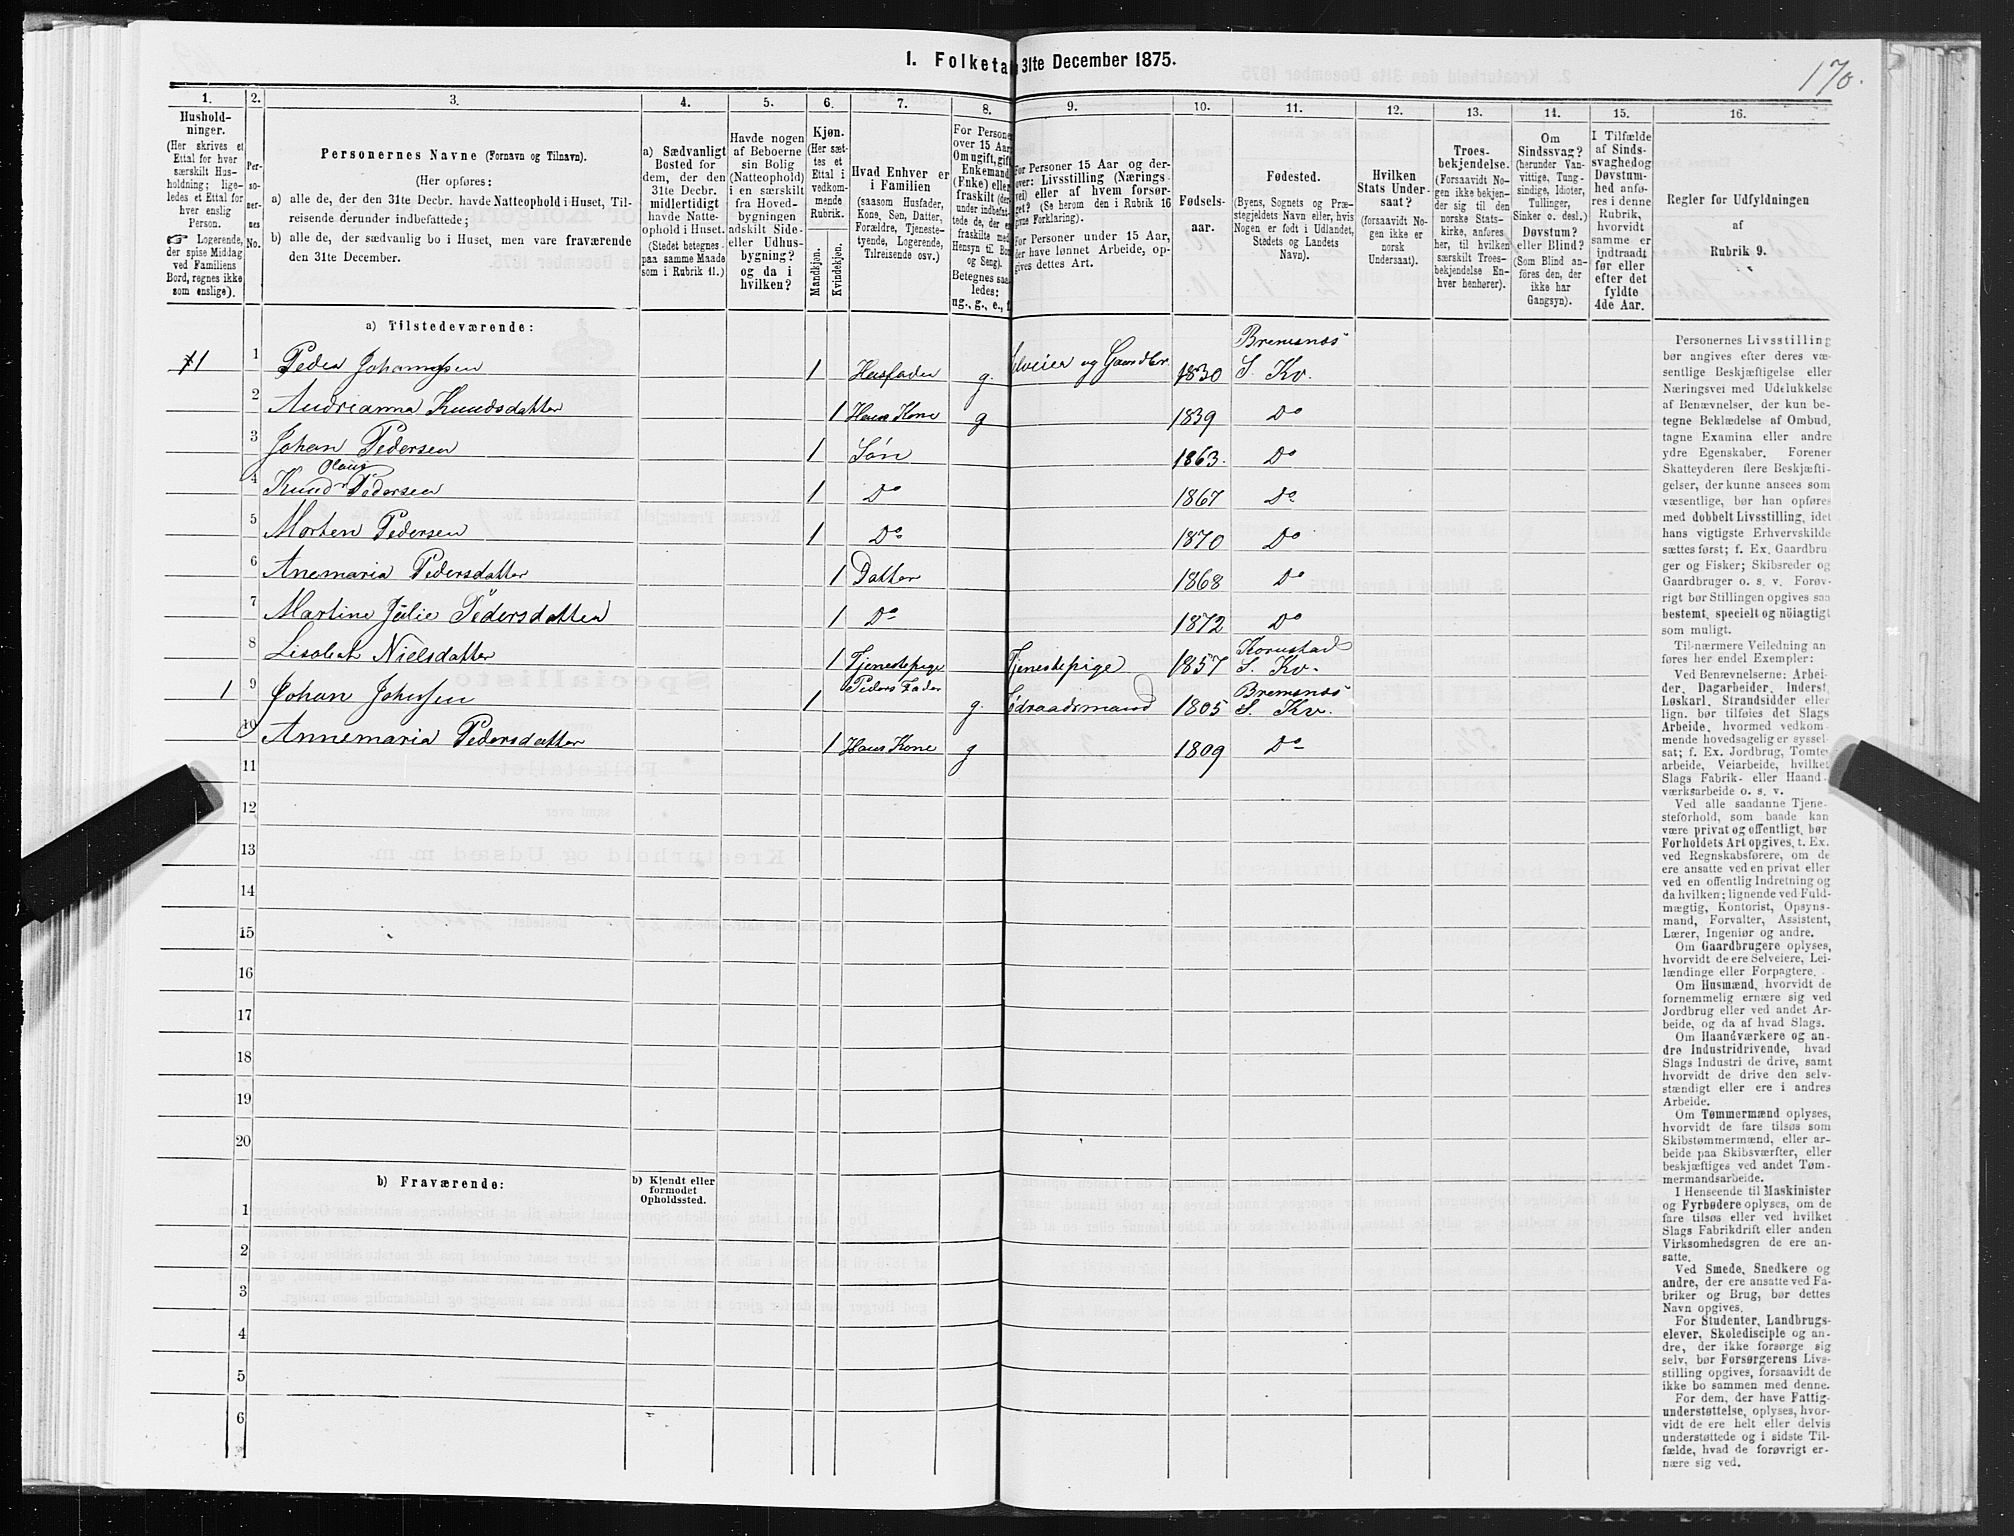 170.
1. Folketa 31te December 1875.
1.
Hushold-
ninger.
(Her skrives et
Ettal for hver
særskilt Hus-
holdning; lige-
ledes et Ettal for
hver enslig
Person.
☞ Logerende,
der spise Middag
ved Familiens
Bord, regnes ikke
som enslige).
2.
Per-
so-
ner-
nes
No.
3.
Personernes Navne (Fornavn og Tilnavn).
(Her opføres:
a) alle de, der den 31te Decbr. havde Natteophold i Huset, Til-
reisende derunder indbefattede;
b) alle de, der sædvanlig bo i Huset, men vare fraværende
den 31te December.
4.
a) Sædvanligt
Bosted for
dem, der den
31te Decbr.
midlertidigt
havde Natte-
ophold i Huset.
(Stedet betegnes
paa samme Maade
som i Rubrik 11.)
5.
Havde nogen
af Beboerne
sin Bolig
(Natteophold)
i en særskilt
fra Hoved-
bygningen
adskilt Side-
eller Udhus-
bygning?
og da i
hvilken?
6.
Kjøn.
(Her sæt-
tes et
Ettal i
vedkom-
mende
Rubrik.
Mandkjøn.
Kvindekjøn.
7.
Hvad Enhver er
i Familien
(saasom Husfader,
Kone, Søn, Datter,
Forældre, Tjeneste-
tyende, Logerende,
Tilreisende osv.)
8.
For Persone
over 15 Aar
Om ugift, gift
Enkemand
(Enke) eller
fraskilt (der-
under indbefat-
tede de, der er
fraskilte med
Hensyn til Bor
og Seng).
Betegnes saa-
ledes:
ug., g., e., f.
9.
For Personer 15 Aar og der-
over: Livsstilling (Nærings-
vei) eller af hvem forsør-
get? (Se herom den i Rubrik 16
givne Forklaring).
For Personer under 15 Aar,
der have lønnet Arbeide, op-
gives dettes Art.
10.
Fødsels-
aar.
11.
Fødested.
(Byens, Sognets og Præ-
stegjeldets Navn eller, hvis
Nogen er født i Udlandet,
Stedets og Landets
Navn).
12.
Hvilken
Stats Under-
saat?
(forsaavidt No-
gen ikke er
norsk
Undersaat).
13.
Troes-
bekjendelse.
(Forsaavidt No-
gen ikke bekjen-
der sig til den
norske Stats-
kirke, anføres
her, til hvilken
særskilt Troes-
bekjendelse En-
hver henhører).
14.
Om
Sindssvag?
(herunder Van-
vittige, Tung-
sindige, Idioter,
Tullinger,
Sinker o. desl.)
Døvstum?
eller Blind?
(Som Blind an-
føres den, der
ikke har
Gangsyn).
15.
I Tilfælde
af Sinds-
svaghedog
Døvstum-
hed anfø-
res i denne
Rubrik,
hvorvidt
samme er
indtraadt
før eller
efter det
fyldte
4de Aar.
16.
Regler før Udfyldningen
af
Rubrik 9.
a) Tilstedeværende:
1 1 Peder Johannsen 1 Husfader g. Selveier og Gaardbr 1830 Bremsnæs S. Kv.
2 Andrianna Knudsdatter 1 Hans Kone g 1839 Do
3 Johan Pedersen 1 Søn 1863. Do
4 Knud Olaus Pedersen 1 Do 1867 Do
5 Morten Pedersen 1 Do 1870 Do
6 Anemaria Pedersdatter 1 Datter 1868 Do
7 Martine Julie Pedersdatter 1 Do 1872 Do
8 Lisabet Nielsdatter 1 Tjenestepige Tjenestepige 1857 Kornstad S. Kv.
1 9 Johan Johnsen 1 Peders Fader g. Fødraadsmand 1805 Bremsnæs S. Kv.
10 Annemaria Pedersdatter 1 Hans Kone g 1809 Do
11
12
13
14
15
16
17
18
19
20
b) Fraværende:
b) Kjendt eller
formodet
Opholdssted.
1
2
3
4
5
6
Personernes Livsstilling
bør angives efter deres væ-
sentlige Beskjæftigelse eller
Næringsvei med Udelukkelse
af Benævnelser, der kun be-
tegne Beklædelse af Ombud,
tagne Examina eller andre
ydre Egenskaber. Forener
Skatteyderen flere Beskjæfti-
gelser, der kunne ansees som
væsentlige, bør han opføres
med dobbelt Livsstilling, idet
hans vigtigste Erhvervskilde
sættes først; f. Ex. Gaardbru
ger og Fisker; Skibsreder og
Gaardbruger o. s. v. Forøv-
rigt bør Stillingen opgives saa
bestemt, specielt og nöiagtigt
som muligt.
Til nærmere Veiledning an
føres her endel Exempler:
Ved Benævnelserne: Arbei-
der, Dagarbeider, Inderst,
Løskarl, Strandsidder eller
lign. bør tilføies det Slags
Arbeide, hvormed vedkom-
mende hovedsagelig er syssel-
sat; f. Ex. Jordbrug, Tomte-
arbeide, Veiarbeide, hvilket
Slags Fabrik- eller Haand-
værksarbeide o. s. v.
Ved alle saadanne Tjene-
steforhold, som baade kan
være privat og offentligt, bør
Forholdets Art opgives, t. Ex.
ved Regnskabsførere, om de
ere ansatte ved en privat eller
ved en offentlig Indretning og
da hvilken; lignende ved Fuld-
mægtig, Kontorist, Opsyns-
mand, Forvalter, Assistent,
Lærer, Ingeniør og andre.
Om Gaardbrugere oplyses,
hvorvidt de ere Selveiere, Lei-
lændinge eller Forpagtere.
Om Husmænd, hvorvidt de
fornemmelig ernære sig ved
Jordbrug eller ved andet Ar-
beide, og da af hvad Slags.
Om Haandværkere og an-
dre Industridrivende, hvad
Slags Industri de drive, samt
hvorvidt de drive den selv-
stændigt eller ere i andres
Arbeide.
Om Tømmermænd oplyses,
hvorvidt de fare tilsøs som
Skibstømmermænd, eller ar-
beide paa Skibsværfter, eller
beskjæftiges ved andet Tøm-
mermandsarbeide.
I Henseende til Maskinister
og Fyrbødere oplyses, om de
fare tilsøs eller ved hvilket
Slags Fabrikdrift eller anden
Virksomhedsgren de ere an-
satte.
Ved Smede, Snedkere og
andre, der ere ansatte ved Fa-
briker og Brug, bør dettes
Navn opgives.
For Studenter, Landbrugs-
elever, Skoledisciple og an-
dre, der ikke forsørge sig
selv, bør Forsørgerens Livs-
stilling opgives, forsaavidt de
ikke bo sammen med denne.
For dem, der have Fattig-
understøttelse, oplyses, hvor-
vidt de ere helt eller delvis
understøttede og i sidste Til-
fælde, hvad de forøvrigt er-
nære sig ved.